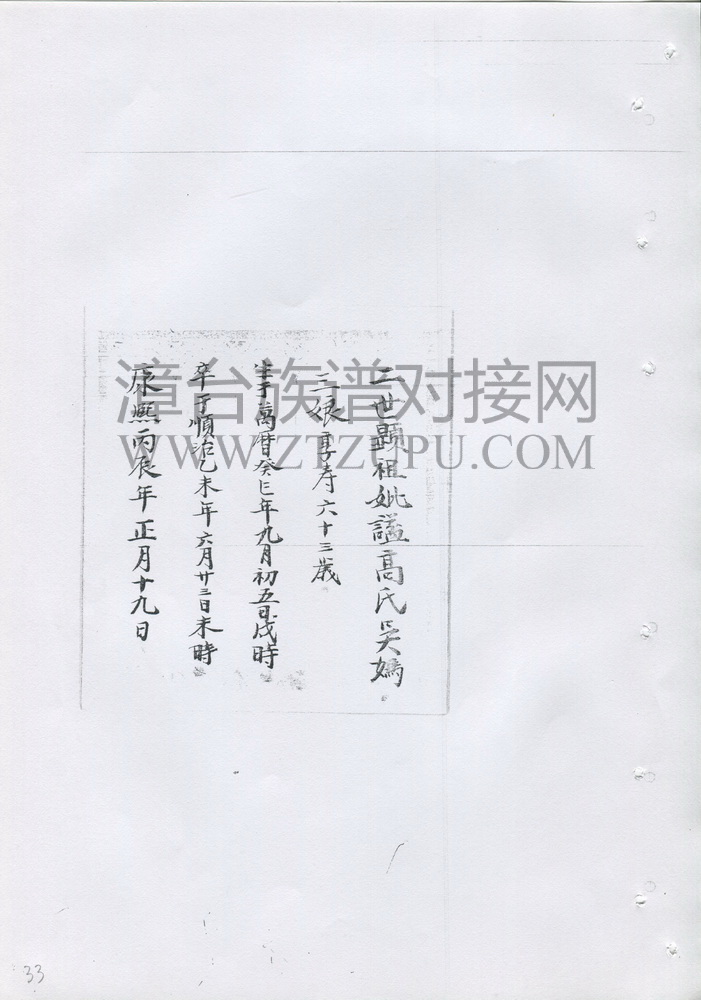 二世顯祖妣謚高氏吳媽
三娘享寿六十三歲
生于萬曆癸巳年九月初五日戌時
卒于順治乙未年六月廿三日未時
康熙丙辰年正月十九日
漳台族谱对接网
WWW.ZTZUPU.COM
33